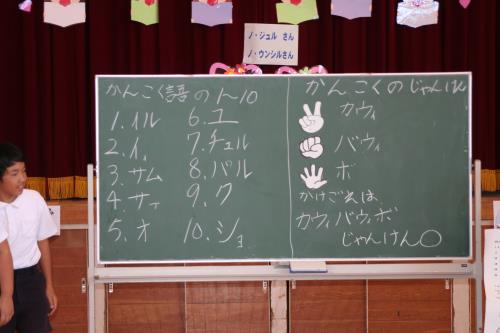 ノ・ジュル さん
ノ・ウンシルさん
かんこく語の1~10
1.イル
2.イィ
3.サム
4.サァ
5.オ
6.ユ
7.チュル
8.パル
9.ク
10.ショ
かんこくのじゃんけん
カウィ
バウィ
ボ
かけごえは、
カウィバウィボ
じゃんけん○